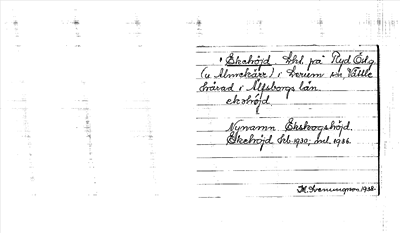 Ekehöjd lht. på Ryd Edg.
(u Almekärr) i Lerum sn, Vättle
härad i Älfsborgs län.
ekəhöjd
Nynamn. Ekskogshöjd.
Ekehöjd feb. 1930; 1936.
1938.